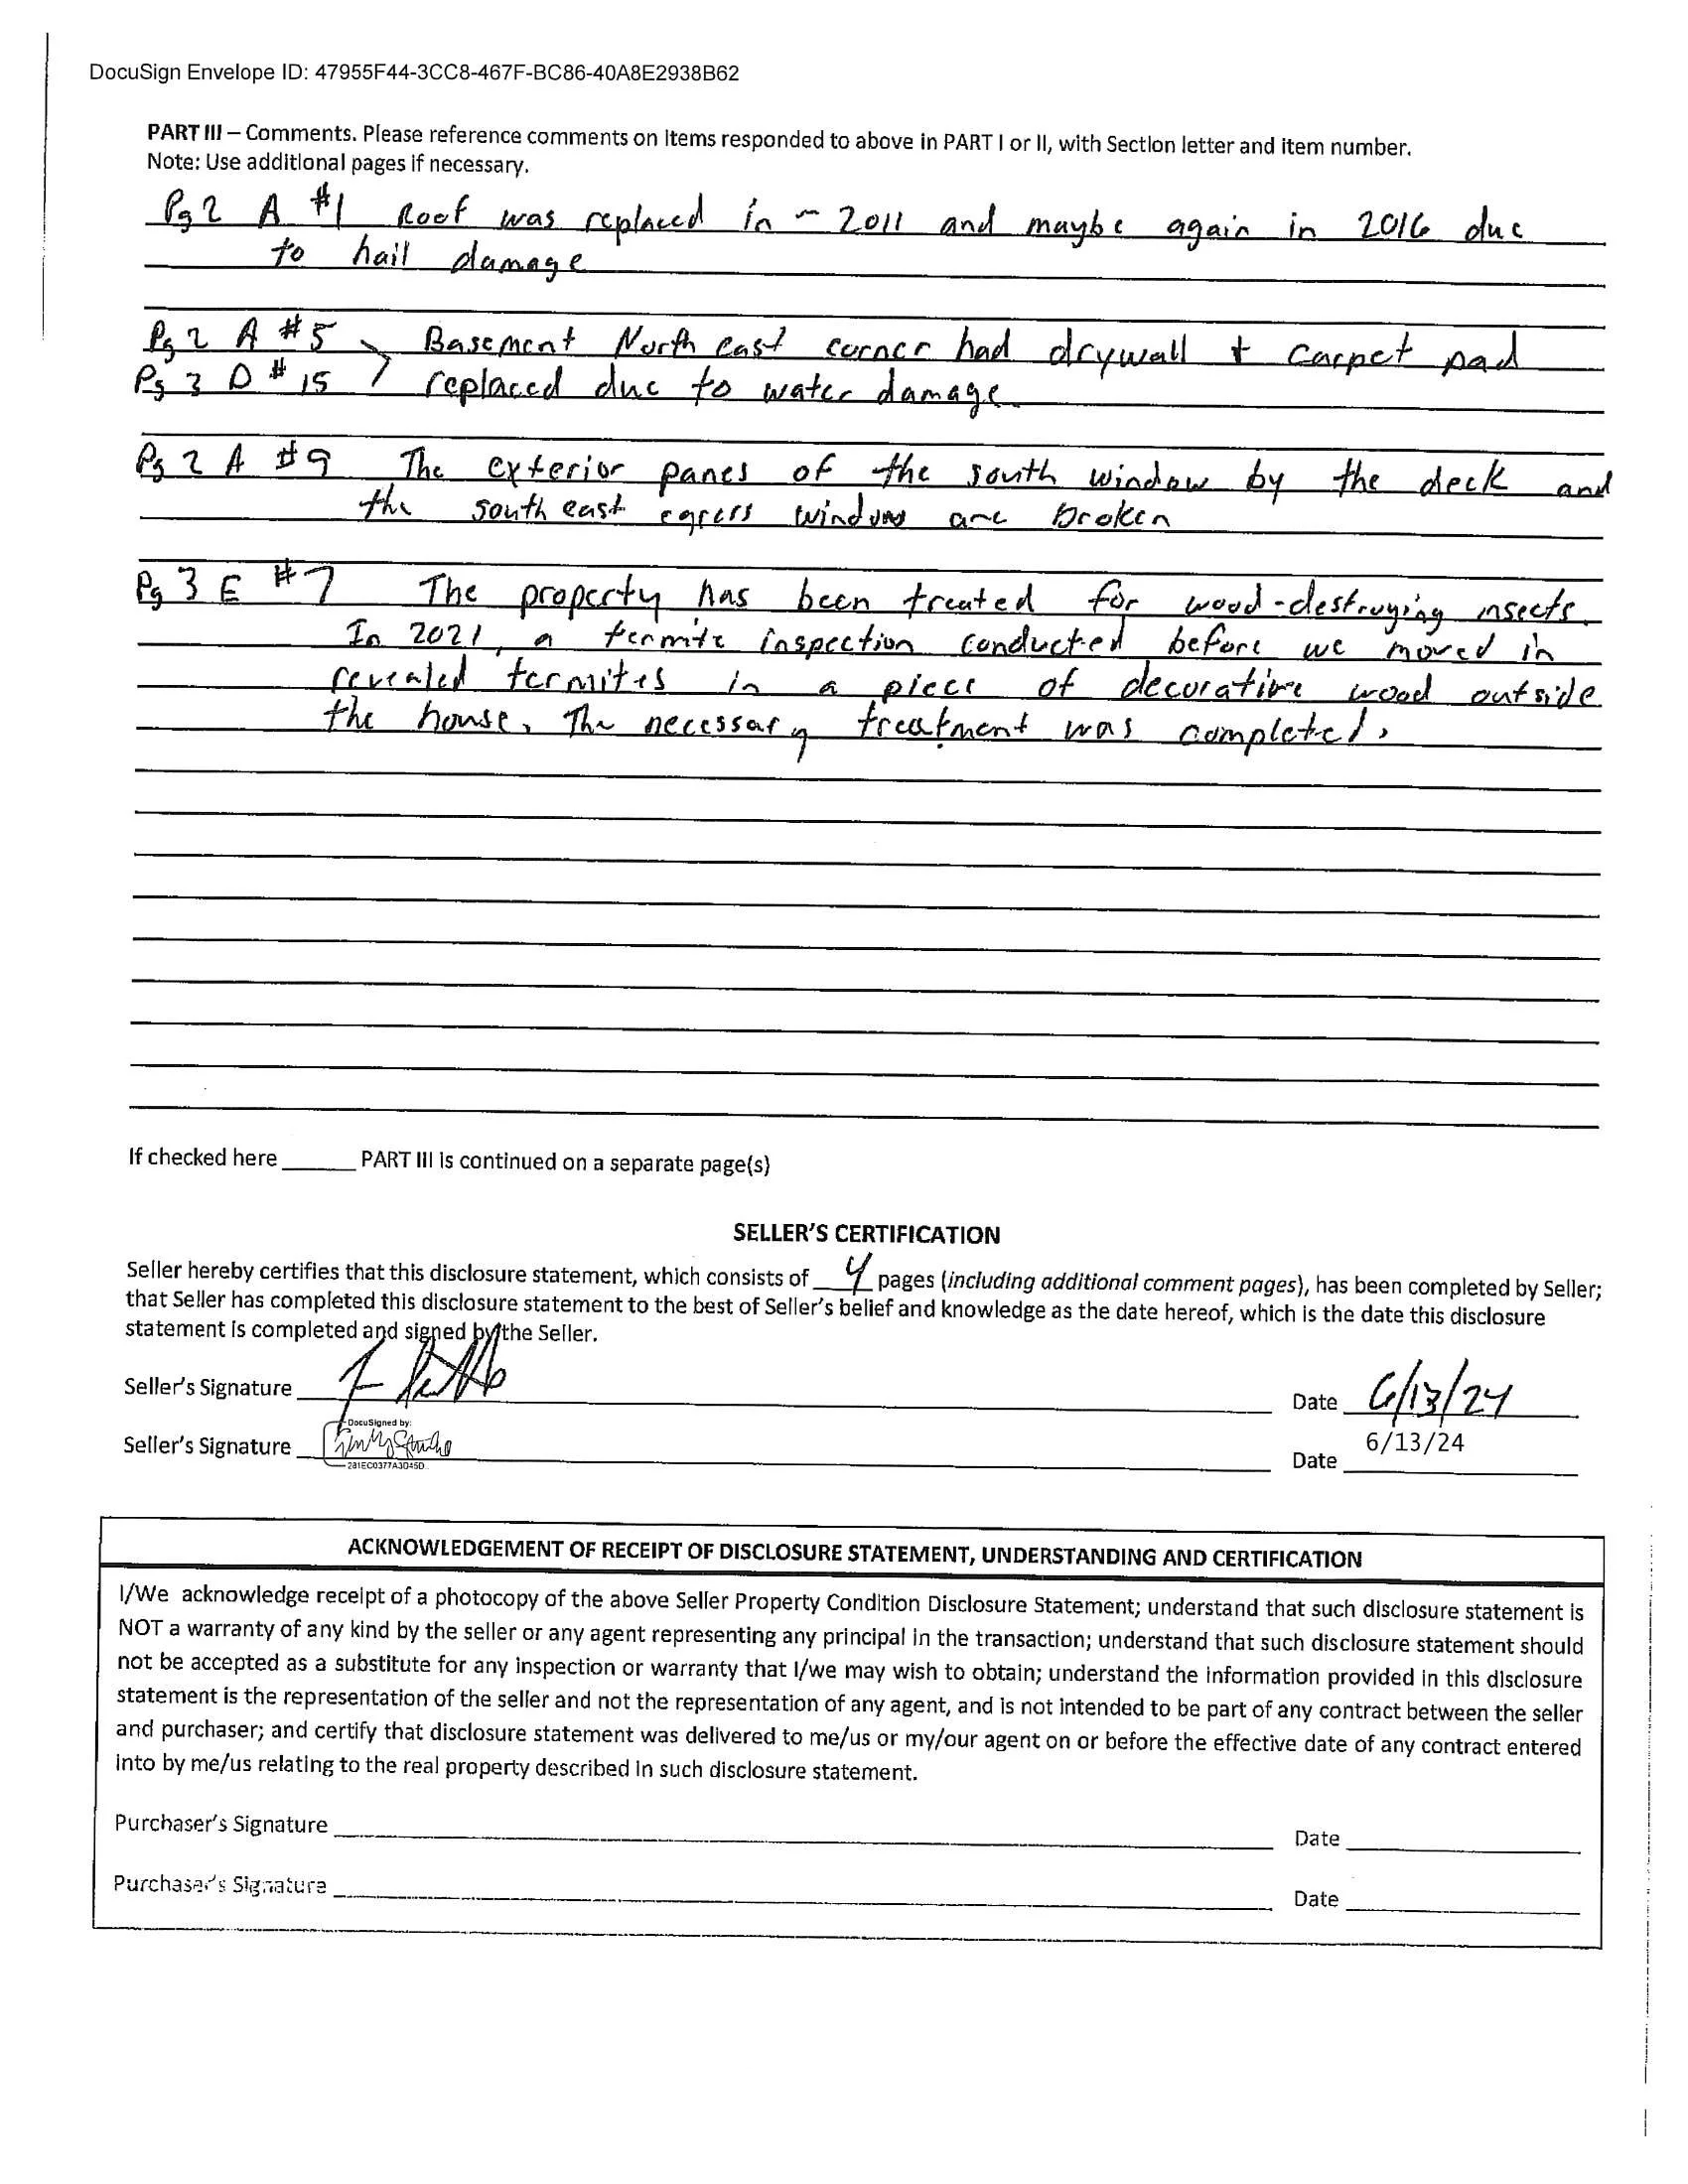 DocuSign Envelope ID: 47955F44-3CC8-467F-BC86-40A8E2938B62
PART III – Comments. Please reference comments on items responded to above in PART I or II, with Section letter and item number.
Note: Use additional pages if necessary.
Pg 2 A #1 Roof was replaced in ~ 2011 and maybe again in 2016 due
to hail damage
Pg 2 A #5 > Basement North east corner had drywall + carpet pad
Pg 3 D #15 replaced due to water damage
Pg 2 A #9 The exterior panes of the south window by the deck and
the south east egress window are broken
Pg 3 E #7 The property has been treated for wood-destroying insects.
In 2021, a termite inspection conducted before we moved in
revealed termites in a piece of decorative wood outside
the house. The necessary treatment was completed.
If checked here ______ PART III is continued on a separate page(s)
SELLER'S CERTIFICATION
Seller hereby certifies that this disclosure statement, which consists of 4 pages (including additional comment pages), has been completed by Seller;
that Seller has completed this disclosure statement to the best of Seller's belief and knowledge as the date hereof, which is the date this disclosure
statement is completed and signed by the Seller.
Seller's Signature Date 6/13/24
DocuSigned by:
Seller's Signature Date 6/13/24
281EC0377A3D45D...
ACKNOWLEDGEMENT OF RECEIPT OF DISCLOSURE STATEMENT, UNDERSTANDING AND CERTIFICATION
I/We acknowledge receipt of a photocopy of the above Seller Property Condition Disclosure Statement; understand that such disclosure statement is
NOT a warranty of any kind by the seller or any agent representing any principal in the transaction; understand that such disclosure statement should
not be accepted as a substitute for any inspection or warranty that I/we may wish to obtain; understand the information provided in this disclosure
statement is the representation of the seller and not the representation of any agent, and is not intended to be part of any contract between the seller
and purchaser; and certify that disclosure statement was delivered to me/us or my/our agent on or before the effective date of any contract entered
into by me/us relating to the real property described in such disclosure statement.
Purchaser's Signature Date
Purchaser's Signature Date